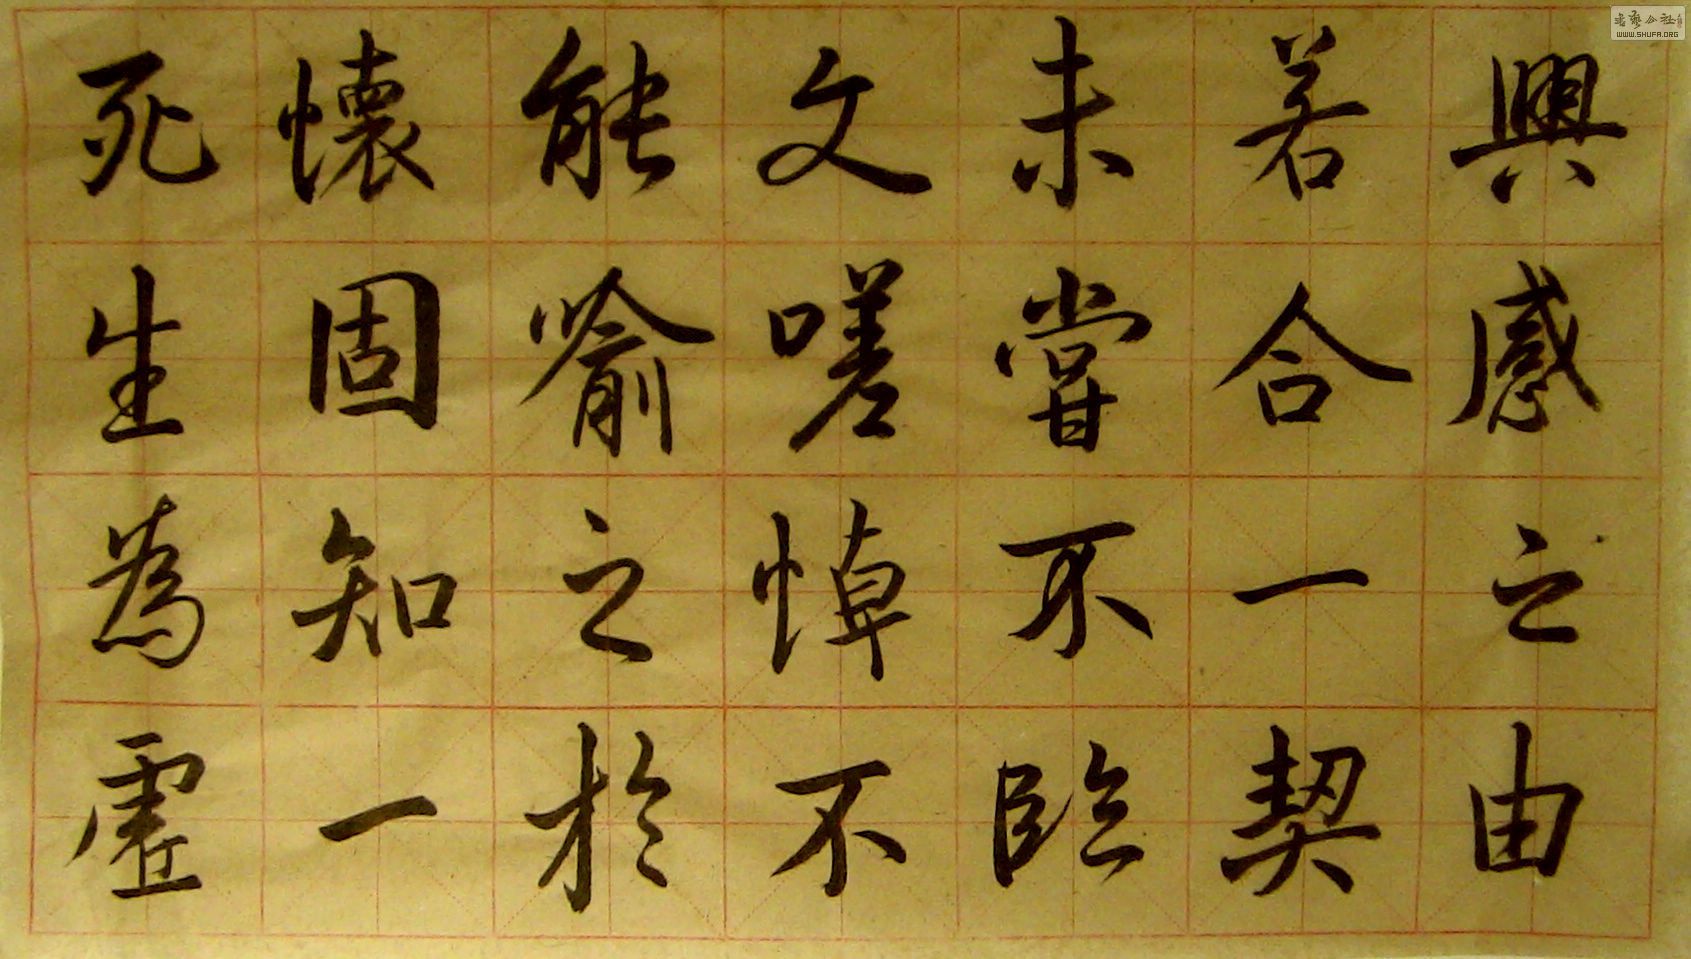 興感之由
若合一契
未嘗不臨
文嗟悼不
能喻之於
懷固知一
死生為虛
書艺公社
WWW.SHUFA.ORG